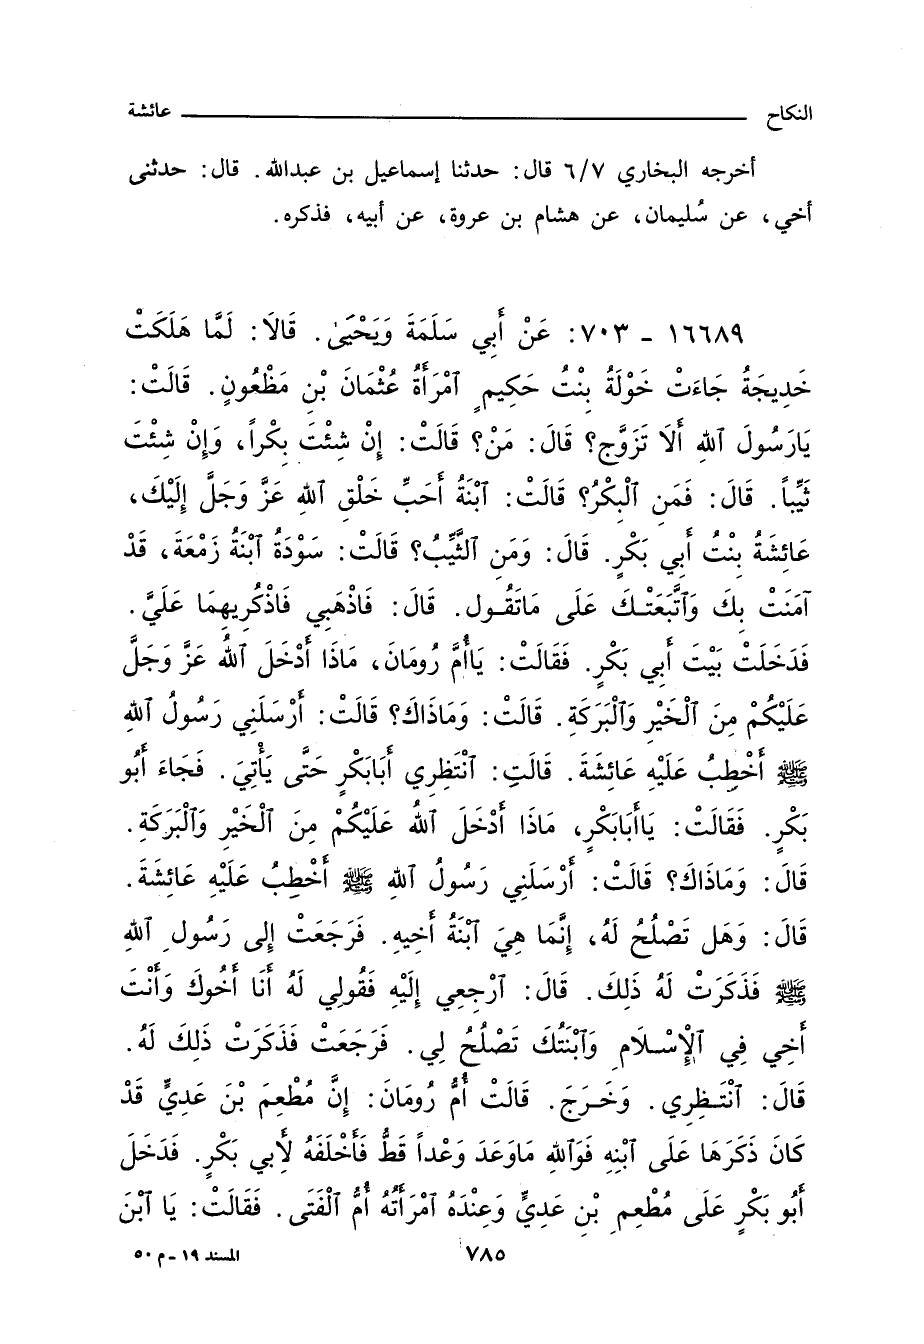 النكاح ــــــــــ عائشة
أخرجه البخاري ٦/٧ قال: حدثنا إسماعيل بن عبدالله. قال: حدثنى
أخي، عن سُليمان، عن هشام بن عروة، عن أبيه، فذكره.
١٦٦٨٩ - ٧٠٣: عَنْ أَبِي سَلَمَةَ وَيَحْيَىٰ. قَالَا: لَمَّا هَلَكَتْ
خَدِيجَةُ جَاءَتْ خَوْلَةُ بِنْتُ حَكِيمٍ ٱمْرَأَةُ عُثْمَانَ بْنِ مَظْعُونٍ. قَالَتْ:
يَارَسُولَ ٱللهِ أَلَا تَزَوَّج؟ قَالَ: مَنْ؟ قَالَتْ: إِنْ شئْتَ بِكْراً، وَإِنْ شِئْتَ
ثَيِّباً. قَالَ: فَمَنِ ٱلْبِكْرُ؟ قَالَتْ: ٱبْنَةُ أَحَبِّ خَلْقِ ٱللهِ عَزَّ وَجَلَّ إِلَيْكَ،
عَائِشَةُ بِنْتُ أَبِي بَكْرٍ. قَالَ: وَمَنِ ٱلثَّيِّبُ؟ قَالَتْ: سَوْدَةُ ٱبْنَةُ زَمْعَةَ، قَدْ
آمَنَتْ بِكَ وَٱتَّبَعَتْكَ عَلَى مَاتَقُول. قَالَ: فَاذْهَبِي فَاذْكُرِيهِمَا عَلَيَّ.
فَدَخَلَتْ بَيْتَ أَبِي بَكْرٍ. فَقَالَتْ: يَاأُمَّ رُومَانَ، مَاذَا أَدْخَلَ ٱللهُ عَزَّ وَجَلَّ
عَلَيْكُمْ مِنَ ٱلْخَيْرِ وَٱلْبَرَكَةِ. قَالَتْ: وَمَاذَاكَ؟ قَالَتْ: أَرْسَلَنِي رَسُولُ ٱللهِ
ﷺ أَخْطِبُ عَلَيْهِ عَائِشَةَ. قَالَتِ: ٱنْتَظِرِي أَبَابَكْرٍ حَتَّى يَأْتِيَ. فَجَاءَ أَبُو
بَكْرٍ. فَقَالَتْ: يَاأَبَابَكْرٍ، مَاذَا أَدْخَلَ ٱللهُ عَلَيْكُمْ مِنَ ٱلْخَيْرِ وَٱلْبَرَكَةِ.
قَالَ: وَمَاذَاكَ؟ قَالَتْ: أَرْسَلَنِي رَسُولُ ٱللهِ ﷺ أَخْطِبُ عَلَيْهِ عَائِشَةَ.
قَالَ: وَهَل تَصْلُحُ لَهُ، إِنَّمَا هِيَ ٱبْنَةُ أَخِيهِ. فَرَجَعَتْ إِلى رَسُولِ ٱللهِ
ﷺ فَذَكَرَتْ لَهُ ذَلِكَ. قَالَ: ٱرْجِعِي إِلَيْهِ فَقُولِي لَهُ أَنَا أَخُوكَ وَأَنْتَ
أَخِي فِي ٱلْإِسْلَامِ وَٱبْنَتُكَ تَصْلُحُ لِي. فَرَجَعَتْ فَذَكَرَتْ ذَلِكَ لَهُ.
قَالَ: ٱنْتَظِرِي. وَخَرَجَ. قَالَتْ أُمُّ رُومَانَ: إِنَّ مُطْعِمَ بْنَ عَدِيٍّ قَدْ
كَانَ ذَكَرَهَا عَلَى ٱبْنِهِ فَوَٱللهِ مَاوَعَدَ وَعْداً قَطُّ فَأَخْلَفَهُ لأَبِي بَكْرٍ. فَدَخَلَ
أَبُو بَكْرٍ عَلَى مُطْعِمِ بْنِ عَدِيٍّ وَعِنْدَهُ ٱمْرَأَتُهُ أُمُّ ٱلْفَتَى. فَقَالَتْ: يَا ٱبْنَ
٧٨٥
المسند ١٩ - م ٥٠